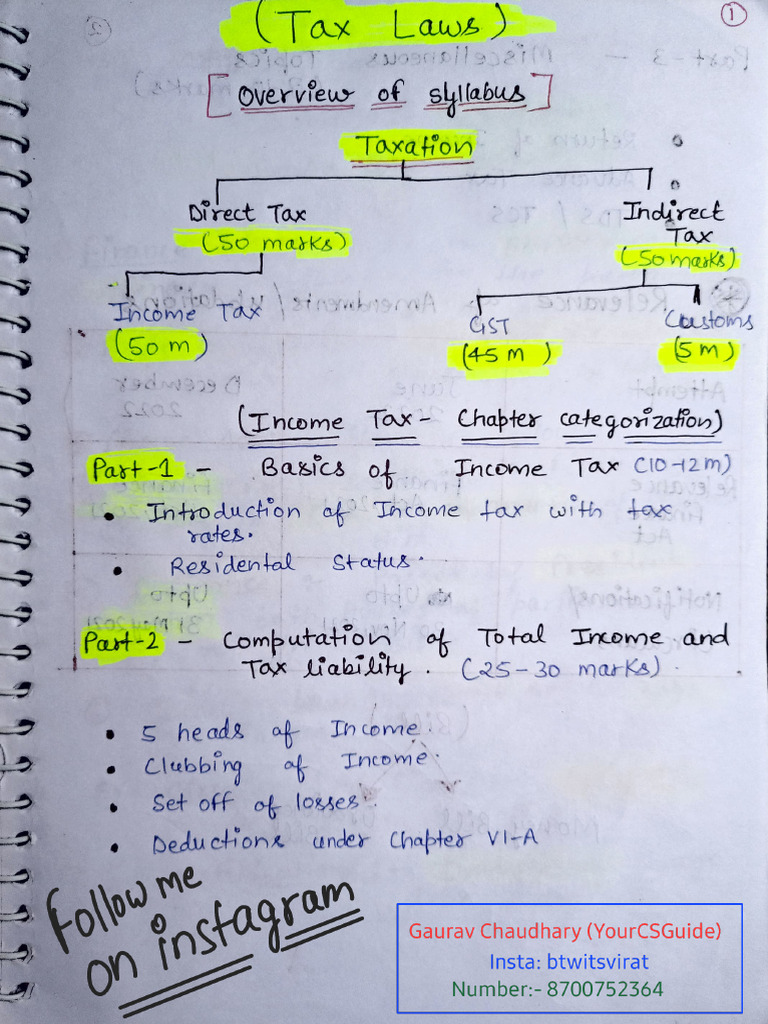 (Tax Laws)
1
[Overview of syllabus]
Taxation
Direct Tax
(50 marks)
Indirect
Tax
(50 marks)
Income Tax
(50 m)
GST
(45 m)
Customs
(5 m)
(Income Tax - Chapter categorization)
Part-1 - Basics of Income Tax (10-12m)
• Introduction of Income tax with tax
rates.
• Residental Status.
Part-2 - Computation of Total Income and
Tax liability. (25-30 marks).
• 5 heads of Income
• Clubbing of Income.
• Set off of losses.
• Deductions under Chapter VI-A
Follow me
on instagram
Gaurav Chaudhary (YourCSGuide)
Insta: btwitsvirat
Number:- 8700752364